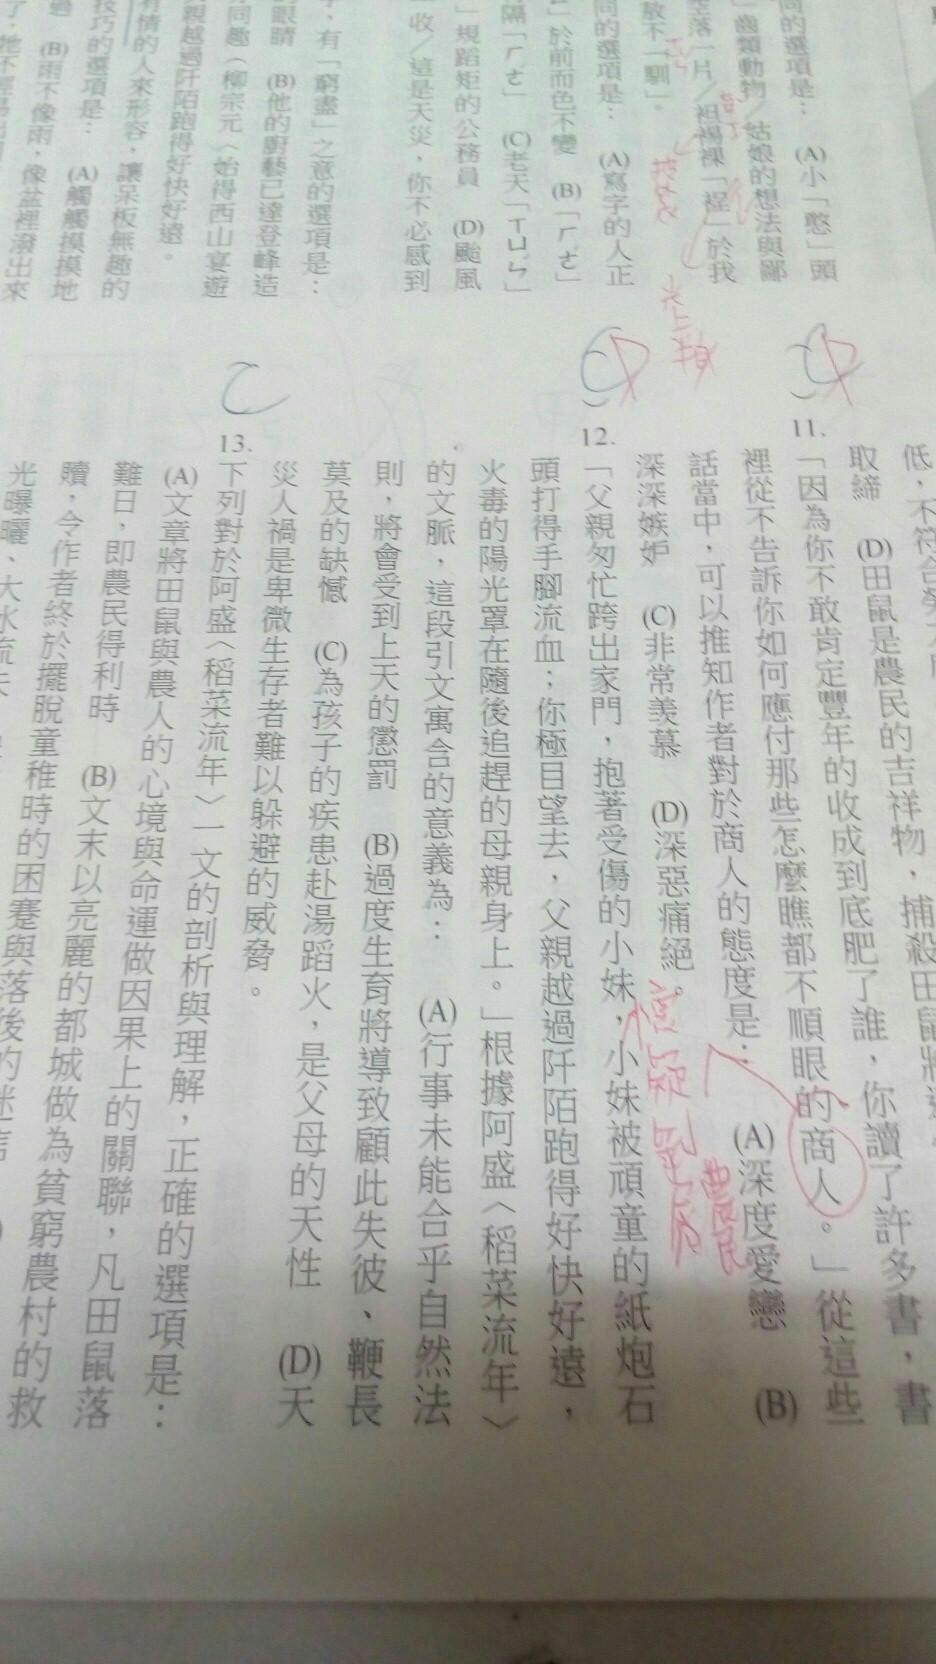 同的選項是：　(A)小「憨」頭
」齒類動物／姑娘的想法與鄙
落一片／袒裼裸「裎」於我
敢不「馴」。
同的選項是：　(A)寫字的人正
」於前而色不變　(B)「ㄏㄜˊ」
隔「ㄏㄜˊ」　(C)老天「ㄒㄩㄣˊ」
」規蹈矩的公務員　(D)颱風
收／這是天災，你不必感到
，有「窮盡」之意的選項是：
眼睛　(B)他的廚藝已達登峰造
同趣（柳宗元〈始得西山宴遊
親越過阡陌跑得好快好遠。
有情的人來形容，讓呆板無趣的
技巧的選項是：　(A)觸觸摸摸地
(B)雨不像雨，像盆裡潑出來
低，不符合
取締　(D)田鼠是農民的吉祥物，捕殺田鼠將
D
11.「因為你不敢肯定豐年的收成到底肥了誰，你讀了許多書，書
裡從不告訴你如何應付那些怎麼瞧都不順眼的商人。」從這些
話當中，可以推知作者對於商人的態度是：　(A)深度愛戀　(B)
深深嫉妒　(C)非常羨慕　(D)深惡痛絕。
農民
D
12.「父親匆忙跨出家門，抱著受傷的小妹，小妹被頑童的紙炮石
頭打得手腳流血；你極目望去，父親越過阡陌跑得好快好遠，
火毒的陽光罩在隨後追趕的母親身上。」根據阿盛〈稻菜流年〉
的文脈，這段引文寓含的意義為：　(A)行事未能合乎自然法
則，將會受到上天的懲罰　(B)過度生育將導致顧此失彼、鞭長
莫及的缺憾　(C)為孩子的疾患赴湯蹈火，是父母的天性　(D)天
災人禍是卑微生存者難以躲避的威脅。
C
13.下列對於阿盛〈稻菜流年〉一文的剖析與理解，正確的選項是：
(A)文章將田鼠與農人的心境與命運做因果上的關聯，凡田鼠落
難日，即農民得利時　(B)文末以亮麗的都城做為貧窮農村的救
贖，令作者終於擺脫童稚時的困蹇與落後的迷信
光曝曬、大水流失